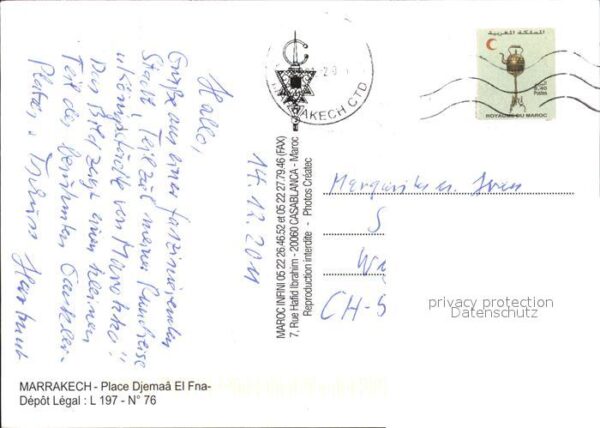 Hallo,
Grüße aus einer faszinierenden
Stadt, Teilziel meiner Rundreise
"Königsstädte von Marokko"!
Das Bild zeigt einen kleinen
Teil des berühmten Gaukler-
Platzes. Tschüss Hartmut
14.12.2011
MAROC INFINI 05 22 26.46.52 et 05 22 27.79.46 (FAX)
7, Rue Hafid Ibrahim - 20060 CASABLANCA - Maroc
Reproduction interdite - Photos Créatec
المملكة المغربية
Postes
ROYAUME DU MAROC
MARRAKECH CTD
S
CH-S
privacy protection
Datenschutz
MARRAKECH - Place Djemaâ El Fna-
Dépôt Légal : L 197 - N° 76